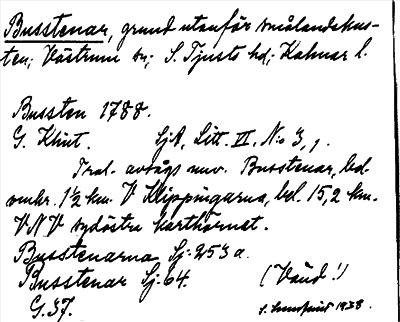 Busstenar, grund utanför Smålandskus-
ten; Västrum sn; S. Tjusts hd; Kalmar l.
Bussten 1788.
G. Klint. SjA, Litt. VI, N:o 3,1.
Trol. avsågs nuv. Busstenar, bel.
omkr. 1½ km. V Klippingarna, bel. 15,2 km.
VNV sydöstra karthörnet.
Busstenarna Sj. 253 a.
Busstenar Sj. 64. (Vånd!)
G. 37. S. 1938.